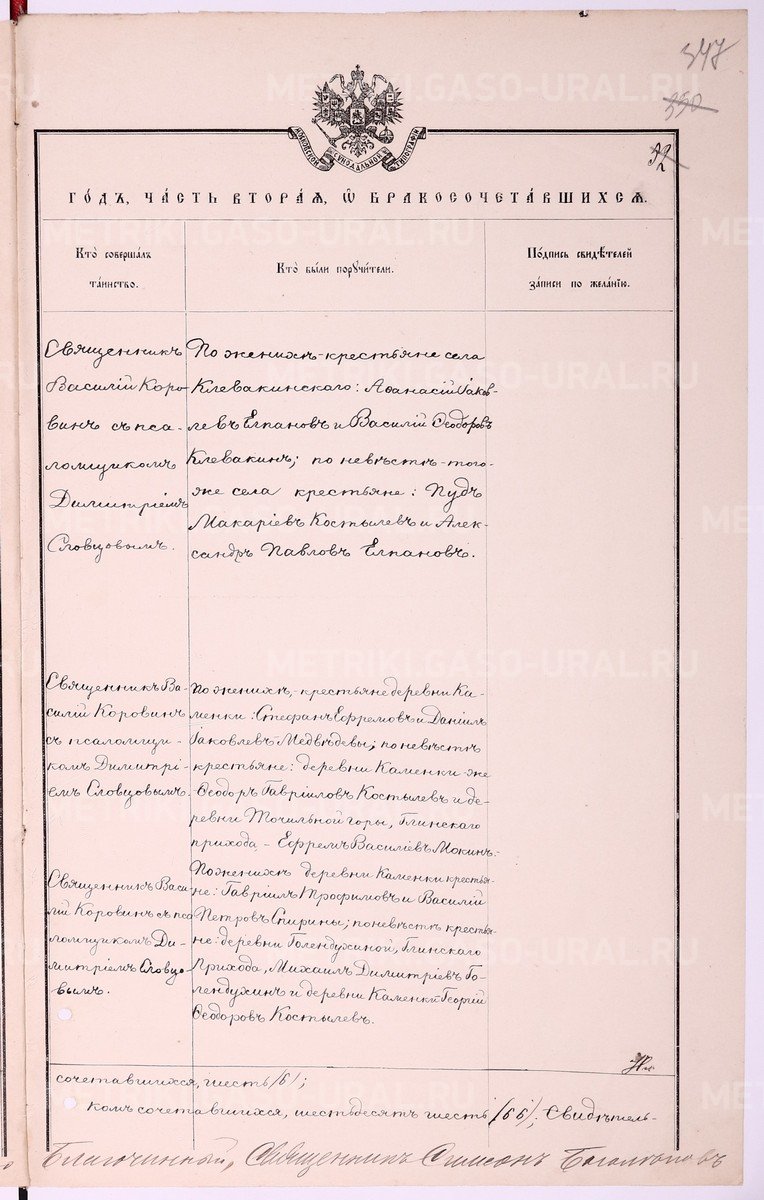 347
350
92
МОСКОВСКОЙ СѴНОДАЛЬНОЙ ТИПОГРАФІИ
ГО́ДЪ, ЧА́СТЬ ВТОРА́Ѧ, Ѡ҆ БРАКОСОЧЕТА́ВШИХСѦ.
Кто̀ соверша́лъ
та́инство.
Кто̀ бы́ли порꙋчи́тели.
По́дпись свидѣ́телей
за́писи по жела́нїю.
Священникъ
Василій Коро-
винъ съ пса-
ломщикомъ
Димитріемъ
Словцовымъ.
По женихѣ-крестьяне села
Клевакинскаго: Аѳанасій Іаков-
левъ Елпановъ и Василій Ѳеодоровъ
Клевакинъ; по невѣстѣ-того-
же села крестьяне: Пудъ
Макаріевъ Костылевъ и Алек-
сандръ Павловъ Елпановъ.
Священникъ Ва-
силій Коровинъ
съ псаломщи-
комъ Димитрі-
емъ Словцовымъ.
По женихѣ,-крестьяне деревни Ка-
менки: Стефанъ Ефремовъ и Даніилъ
Іаковлевъ Медвѣдевы; по невѣстѣ
крестьяне: деревни Каменки-же
Ѳеодоръ Гавріиловъ Костылевъ и де-
ревни Точильной горы, Глинскаго
прихода,- Ефремъ Василіевъ Мокинъ.
Священникъ Васи-
лій Коровинъ съ пса
ломщикомъ Ди-
митріемъ Словцо-
вымъ.
По женихѣ деревни Каменки крестья-
не: Гавріилъ Трофимовъ и Василій
Петровъ Спирины; по невѣстѣ крестья-
не: деревни Голендухиной, Глинскаго
Прихода, Михаилъ Димитріевъ Го-
лендухинъ и деревни Каменки Георгій
Ѳеодоровъ Костылевъ.
сочетавшихся, шесть /6/;
комъ сочетавшихся, шестьдесятъ шесть /66/, Свидѣтель-
Благочинный, Священникъ Симеонъ Боголѣповъ
METRIKI.GASO-URAL.RU